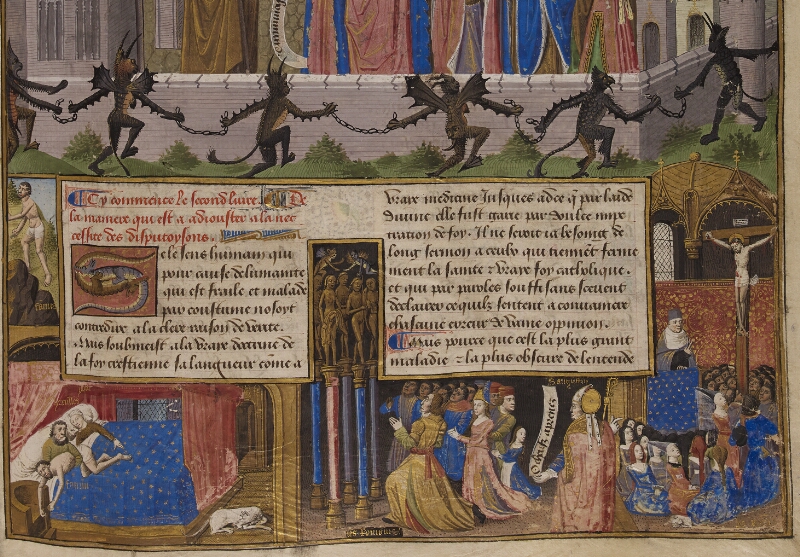 Cy commence le second liure. De
la maniere qui est a adiouster a la nec
cessite des disputoysons.
Se le sens humain qui
pour cause de lumanite
qui est fraile et malade
par coustume nosoit
contredire a la clere raison de verite.
Mais soubmeist a la vraye doctrine de
la foy crestienne sa langueur come a
vraye medicine Jusques adce q̄ par laide
diuine elle fust garie par doulce impe
tration de foy. Il ne seroit ia besoing de
long sermon a ceulx qui tiennēt ferme
ment la sainte & vraye foy catholique.
et qui par paroles souffisans sceuent
declairer ce quilz sentent a conuaincre
chascune erreur de vaine oppinion.
Mais pource que cest la plus grant
maladie & la plus obscure de lentende